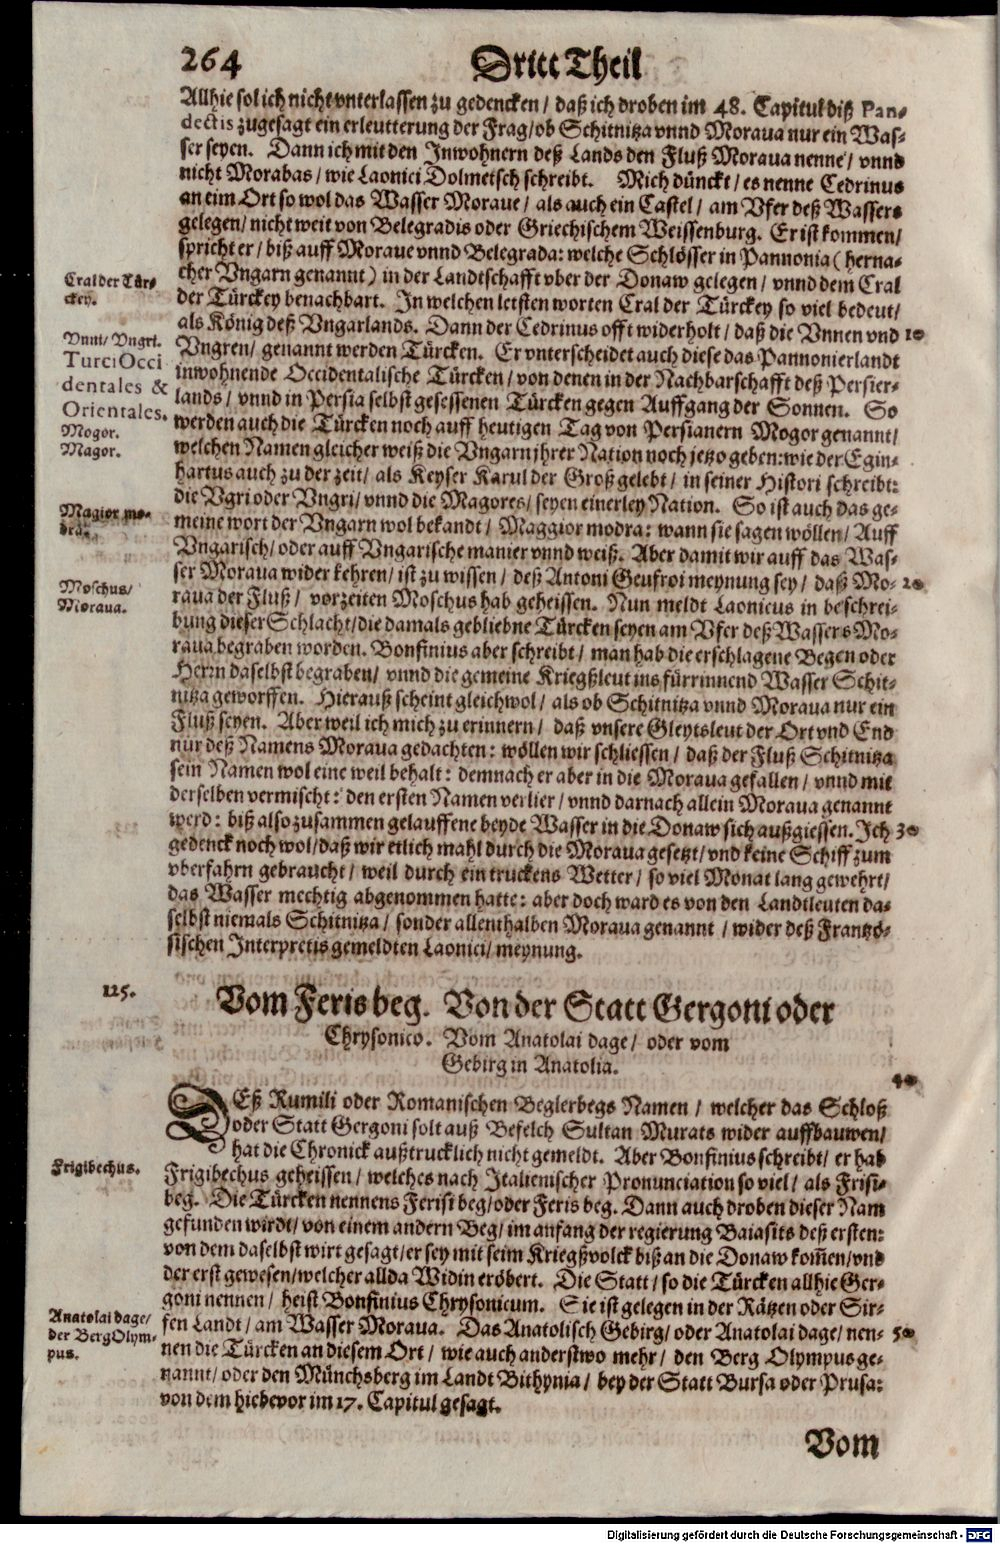 264 Dritt Theil
Allhie sol ich nicht vnterlassen zu gedencken / daß ich droben im 48. Capitul diß Pan-
dectis zugesagt ein erleutterung der Frag / ob Schitnitza vnnd Moraua nur ein Was-
ser seyen. Dann ich mit den Inwohnern deß Lands den Fluß Moraua nenne / vnnd
nicht Morabas / wie Laonici Dolmetsch schreibt. Mich dünckt / es nenne Cedrinus
an eim Ort so wol das Wasser Moraue / als auch ein Castel / am Vfer deß Wassers
gelegen / nicht weit von Belegradis oder Griechischem Weissenburg. Er ist kommen /
spricht er / biß auff Moraue vnnd Belegrada: welche Schlösser in Pannonia ( herna-
Cral der Tür-
ckey.
cher Vngarn genannt ) in der Landtschafft vber der Donaw gelegen / vnnd dem Cral
der Türckey benachbart. In welchen letsten worten Cral der Türckey so viel bedeut /
als König deß Vngarlands. Dann der Cedrinus offt widerholt / daß die Vnnen vnd 10
Vnni / Vngri.
Turci Occi
dentales &
Orientales.
Mogor.
Magor.
Vngren / genannt werden Türcken. Er vnterscheidet auch diese das Pannonierlandt
inwohnende Occidentalische Türcken / von denen in der Nachbarschafft deß Persier-
lands / vnnd in Persia selbst gesessenen Türcken gegen Auffgang der Sonnen. So
werden auch die Türcken noch auff heutigen Tag von Persianern Mogor genannt /
welchen Namen gleicher weiß die Vngarn jhrer Nation noch jetzo geben: wie der Egin-
hartus auch zu der zeit / als Keyser Karul der Groß gelebt / in seiner Histori schreibt:
die Vgri oder Vngri / vnnd die Magores / seyen einerley Nation. So ist auch das ge-
Magior mo-
dra.
meine wort der Vngarn wol bekandt / Maggior modra: wann sie sagen wöllen / Auff
Vngarisch / oder auff Vngarische manier vnnd weiß. Aber damit wir auff das Was-
ser Moraua wider kehren / ist zu wissen / deß Antoni Geufroi meynung sey / daß Mo- 20
Moschus /
Moraua.
raua der Fluß / vorzeiten Moschus hab geheissen. Nun meldt Laonicus in beschrei-
bung dieser Schlacht / die damals gebliebne Türcken seyen am Vfer deß Wassers Mo-
raua begraben worden. Bonfinius aber schreibt / man hab die erschlagene Begen oder
Herrn daselbst begraben / vnnd die gemeine Kriegßleut ins fürrinnend Wasser Schit-
nitza geworffen. Hierauß scheint gleichwol / als ob Schitnitza vnnd Moraua nur ein
Fluß seyen. Aber weil ich mich zu erinnern / daß vnsere Gleytsleut der Ort vnd End
nur deß Namens Moraua gedachten: wöllen wir schliessen / daß der Fluß Schitnitza
sein Namen wol eine weil behalt: demnach er aber in die Moraua gefallen / vnnd mit
derselben vermischt: den ersten Namen verlier / vnnd darnach allein Moraua genannt
werd: biß also zusammen gelauffene beyde Wasser in die Donaw sich außgiessen. Ich 30
gedenck noch wol / daß wir etlich mahl durch die Moraua gesetzt / vnd keine Schiff zum
vberfahrn gebraucht / weil durch ein truckens Wetter / so viel Monat lang gewehrt /
das Wasser mechtig abgenommen hatte: aber doch ward es von den Landtleuten da-
selbst niemals Schitnitza / sonder allenthalben Moraua genannt / wider deß Frantzö-
sischen Interpretis gemeldten Laonici / meynung.
125.
Vom Feris beg. Von der Statt Gergoni oder
Chrysonico. Vom Anatolai dage / oder vom
Gebirg in Anatolia.
40
DEß Rumili oder Romanischen Beglerbegs Namen / welcher das Schloß
oder Statt Gergoni solt auß Befelch Sultan Murats wider auffbauwen /
hat die Chronick außtrucklich nicht gemeldt. Aber Bonfinius schreibt / er hab
Frigibechus.
Frigibechus geheissen / welches nach Italienischer Pronunciation so viel / als Frisi-
beg. Die Türcken nennens Ferist beg / oder Feris beg. Dann auch droben dieser Nam
gefunden wirdt / von einem andern Beg / im anfang der regierung Baiasits deß ersten:
von dem daselbst wirt gesagt / er sey mit seim Kriegßvolck biß an die Donaw kom̃en / vnd
der erst gewesen / welcher allda Widin eröbert. Die Statt / so die Türcken allhie Ger-
goni nennen / heist Bonfinius Chrysonicum. Sie ist gelegen in der Rätzen oder Sir-
Anatolai dage /
der Berg Olym-
pus.
fen Landt / am Wasser Moraua. Das Anatolisch Gebirg / oder Anatolai dage / nen- 50
nen die Türcken an diesem Ort / wie auch anderstwo mehr / den Berg Olympus ge-
nannt / oder den Münchsberg im Landt Bithynia / bey der Statt Bursa oder Prusa:
von dem hiebevor im 17. Capitul gesagt.
Vom
Digitalisierung gefördert durch die Deutsche Forschungsgemeinschaft - DFG